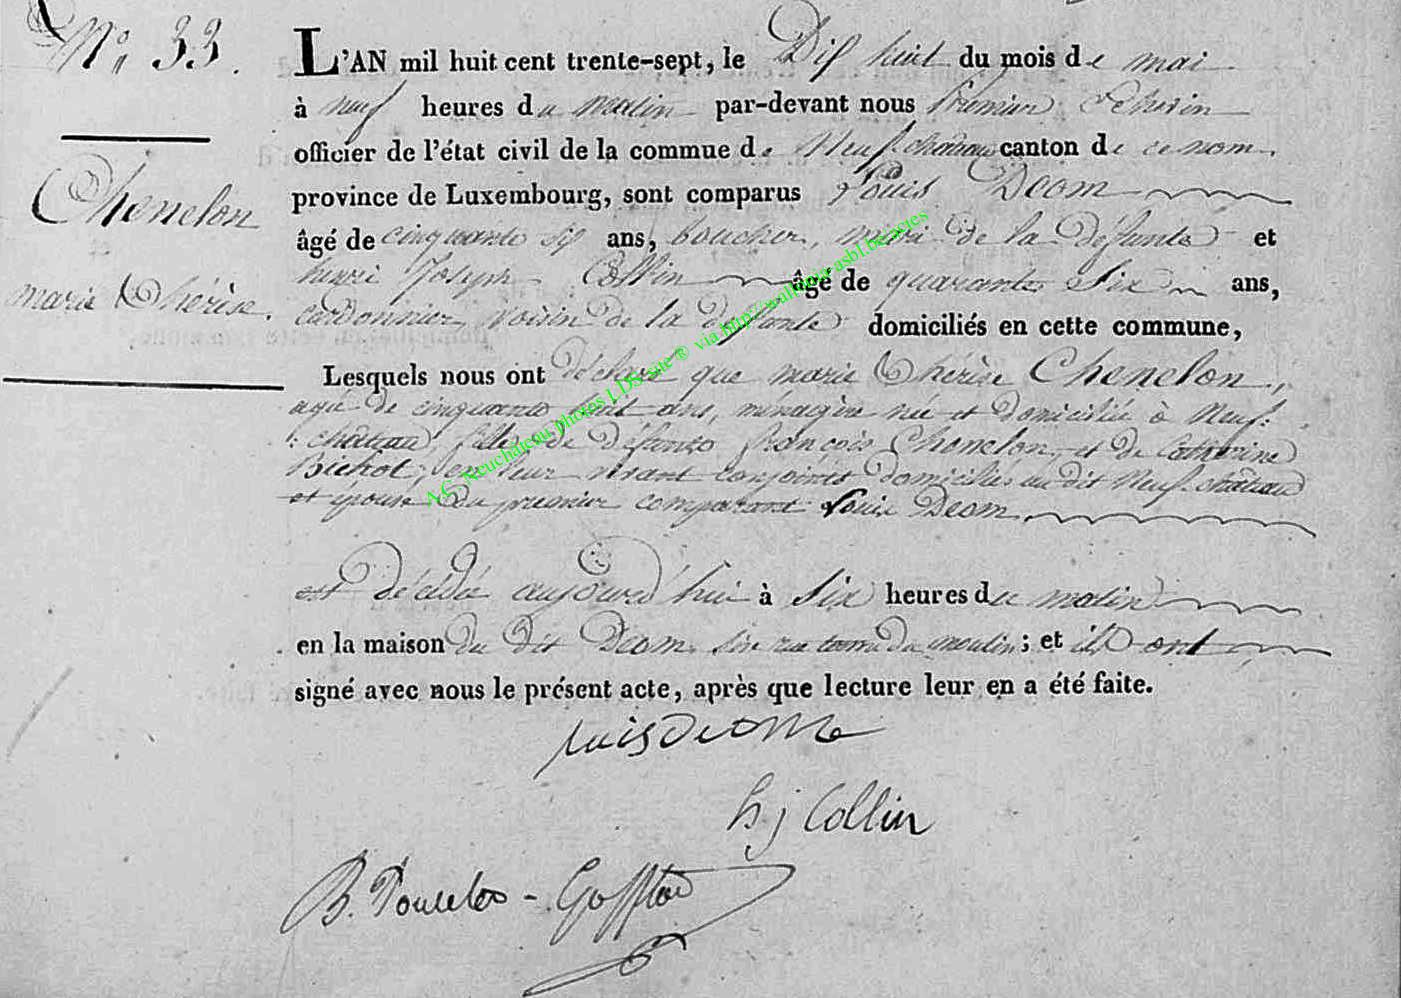 N° 33.
Chenelon
marie Thérèse.
L'AN mil huit cent trente-sept, le Dix huit du mois de mai
à neuf heures du matin par-devant nous premier Echevin
officier de l'état civil de la commue de Neufchateau canton de ce nom,
province de Luxembourg, sont comparus Louis Deom
âgé de cinquante six ans, boucher, mari de la défunte et
henri Joseph Collin âgé de quarante Six ans,
cordonnier, voisin de la défunte domiciliés en cette commune,
Lesquels nous ont déclaré que marie Thérèse Chenelon,
agée de cinquante ans, ménagère née et domiciliée à Neuf-
château, fille de défunts françois Chenelon, et de Catherine
Bichot, en leur vivant conjoints domiciliés au dit Neufchâteau
et épouse du premier comparant Louis Deom.
est décédée aujourd'hui à Six heures du matin
en la maison du dit Deom, du moulin; et ils ont
signé avec nous le présent acte, après que lecture leur en a été faite.
Luis Deome
h j Collin
B. Poncelet - Goffin
A.C. Neuchâteau photos LDS site ® via http://wallonia-asbl.be/actes